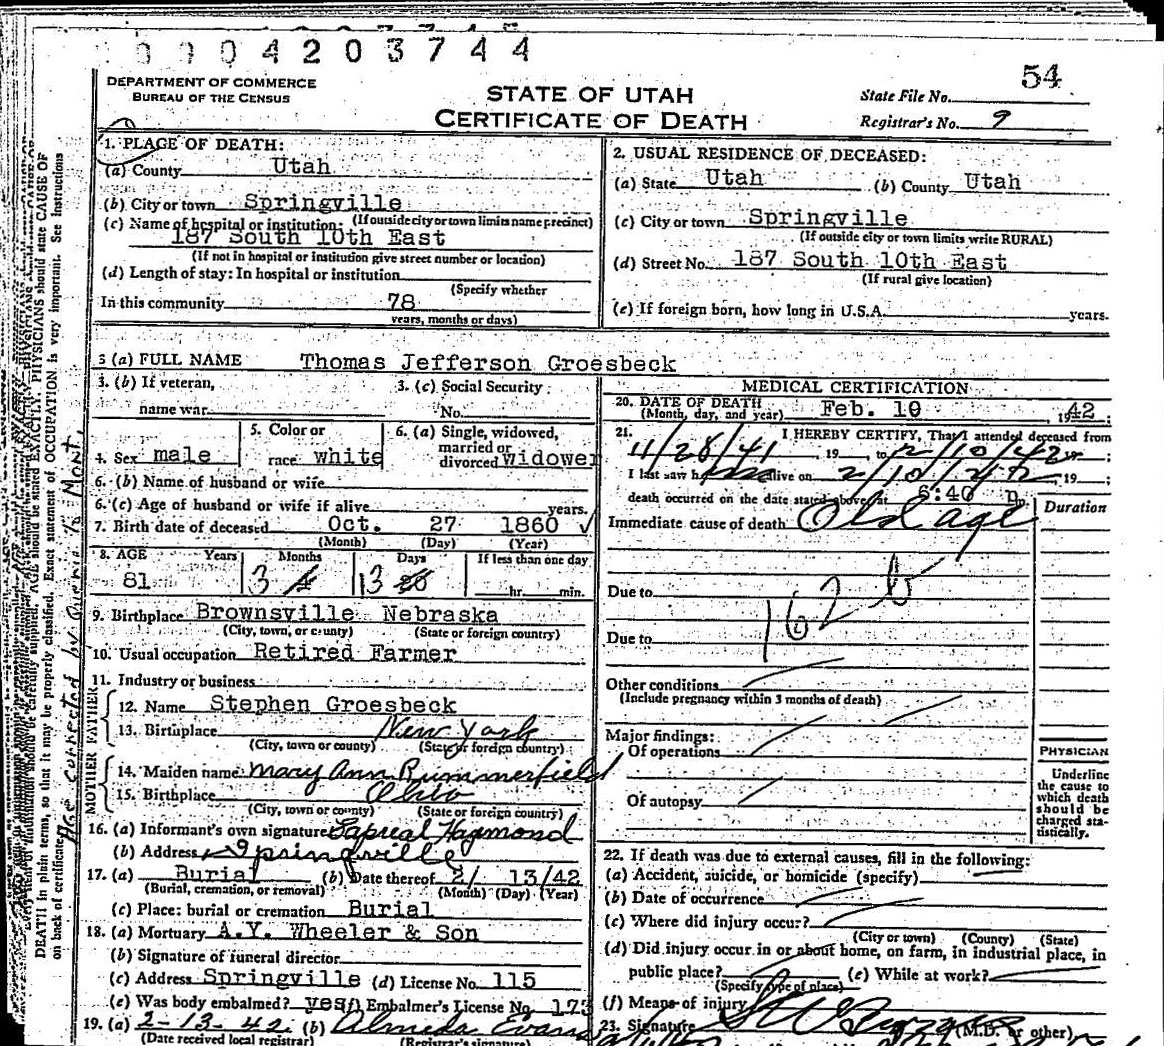 0 0 0 4 2 0 3 7 4 4
54
DEPARTMENT OF COMMERCE
BUREAU OF THE CENSUS
STATE OF UTAH
CERTIFICATE OF DEATH
State File No.
Registrar's No. 9
1. PLACE OF DEATH:
(a) County Utah
(b) City or town Springville
(If outside city or town limits name precinct)
(c) Name of hospital or institution:
187 South 10th East
(If not in hospital or institution give street number or location)
(d) Length of stay: In hospital or institution
(Specify whether
In this community 78
years, months or days)
2. USUAL RESIDENCE OF DECEASED:
(a) State Utah (b) County Utah
(c) City or town Springville
(If outside city or town limits write RURAL)
(d) Street No. 187 South 10th East
(If rural give location)
(e) If foreign born, how long in U.S.A. years.
3 (a) FULL NAME Thomas Jefferson Groesbeck
3. (b) If veteran,
name war
3. (c) Social Security
No.
4. Sex male
5. Color or
race white
6. (a) Single, widowed,
married or
divorced widower
6. (b) Name of husband or wife
6. (c) Age of husband or wife if alive years.
7. Birth date of deceased Oct. 27 1860 ✓
(Month) (Day) (Year)
8. AGE Years Months Days If less than one day
81 3 4 13 hr. min.
9. Birthplace Brownsville Nebraska
(City, town, or county) (State or foreign country)
10. Usual occupation Retired Farmer
11. Industry or business
FATHER
12. Name Stephen Groesbeck
13. Birthplace New York
(City, town or county) (State or foreign country)
MOTHER
14. Maiden name Mary Ann Rummerfield
15. Birthplace Ohio
(City, town or county) (State or foreign country)
16. (a) Informant's own signature Hammond
(b) Address Springville
17. (a) Burial (b) Date thereof 2/ 13/42
(Burial, cremation, or removal) (Month) (Day) (Year)
(c) Place: burial or cremation Burial
18. (a) Mortuary A.Y. Wheeler & Son
(b) Signature of funeral director
(c) Address Springville (d) License No. 115
(e) Was body embalmed? yes Embalmer's License No. 173
19. (a) 2-13-42 (b) Almeda Evans
(Date received local registrar) (Registrar's signature)
MEDICAL CERTIFICATION
20. DATE OF DEATH
(Month, day, and year) Feb. 10 1942;
21. I HEREBY CERTIFY, That I attended deceased from
11/28/41, 19 , to 2/10/42, 19 ;
I last saw him alive on 2/10/42, 19 ;
death occurred on the date stated above at 8:40 p.
Duration
Immediate cause of death Old age
Due to
162 b
Due to
Other conditions
(Include pregnancy within 3 months of death)
Major findings:
Of operations
Of autopsy
PHYSICIAN
Underline
the cause to
which death
should be
charged sta-
tistically.
22. If death was due to external causes, fill in the following:
(a) Accident, suicide, or homicide (specify)
(b) Date of occurrence
(c) Where did injury occur?
(City or town) (County) (State)
(d) Did injury occur in or about home, on farm, in industrial place, in
public place? (e) While at work?
(Specify type of place)
(f) Means of injury
23. Signature (M.D. or other)
AGE should be stated EXACTLY. PHYSICIANS should state CAUSE OF
DEATH in plain terms, so that it may be properly classified. Exact statement of OCCUPATION is very important. See Instructions
on back of certificate.
Age corrected by